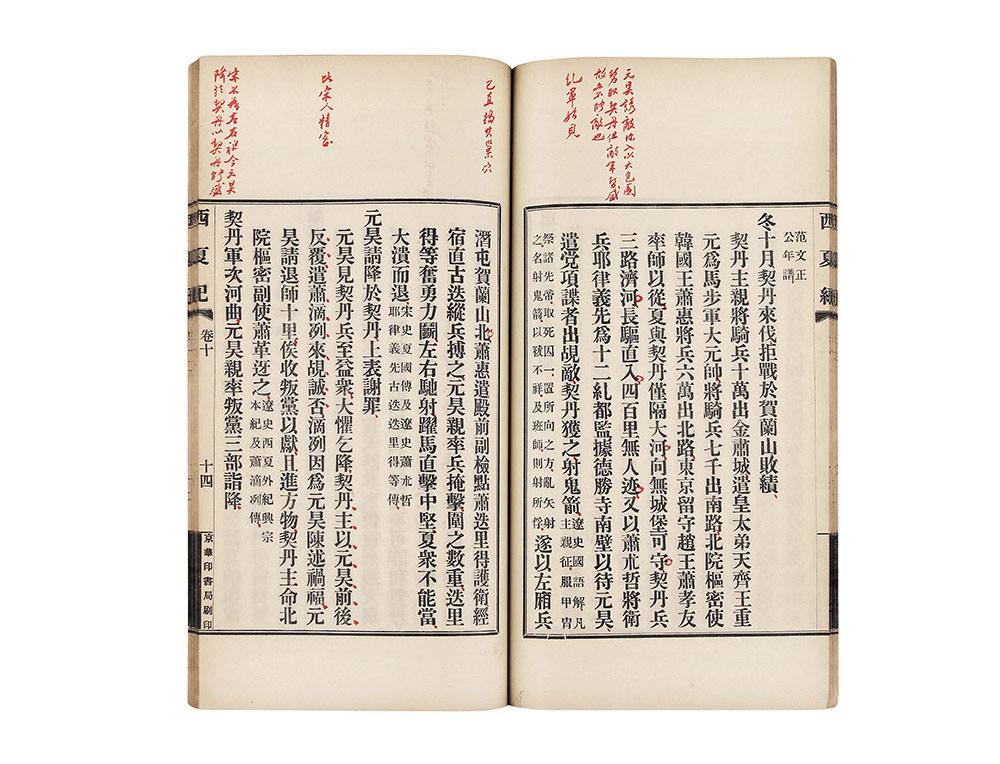 西夏紀
范文正
公年譜
冬十月契丹來伐拒戰於賀蘭山敗績
契丹主親將騎兵十萬出金肅城遣皇太弟天齊王重
元爲馬步軍大元帥將騎兵七千出南路北院樞密使
韓國王蕭惠將兵六萬出北路東京留守趙王蕭孝友
率師以從夏與契丹僅隔大河向無城堡可守契丹兵
三路濟河長驅直入四百里無人迹又以蕭朮哲將衛
兵耶律義先爲十二乣都監據德勝寺南壁以待元昊
遣党項諜者出覘敵契丹獲之射鬼箭遼史國語解凡
主親征服甲冑
祭諸先帝取死囚一置所向之方亂矢射
之名射鬼箭以祓不祥及班師則射所俘遂以左廂兵
元昊誘敵深入以大包圍
乣軍始見
潛屯賀蘭山北蕭惠遣殿前副檢點蕭迭里得護衛經
宿直古迭縱兵搏之元昊親率兵掩擊圍之數重迭里
得等奮勇力鬭左右馳射躍馬直擊中堅夏衆不能當
大潰而退宋史夏國傳及遼史蕭朮哲
耶律義先古迭迭里得等傳
元昊請降於契丹上表謝罪
元昊見契丹兵至益衆大懼乞降契丹主以元昊前後
反覆遣蕭滴冽來覘誠否滴冽因爲元昊陳述禍福元
昊請退師十里俟收叛黨以獻且進方物契丹主命北
院樞密副使蕭革迓之遼史西夏外紀興宗
本紀及蕭滴冽傳
契丹軍次河曲元昊親率叛黨三部詣降
西夏紀 卷十 十四 京華印書局刷印